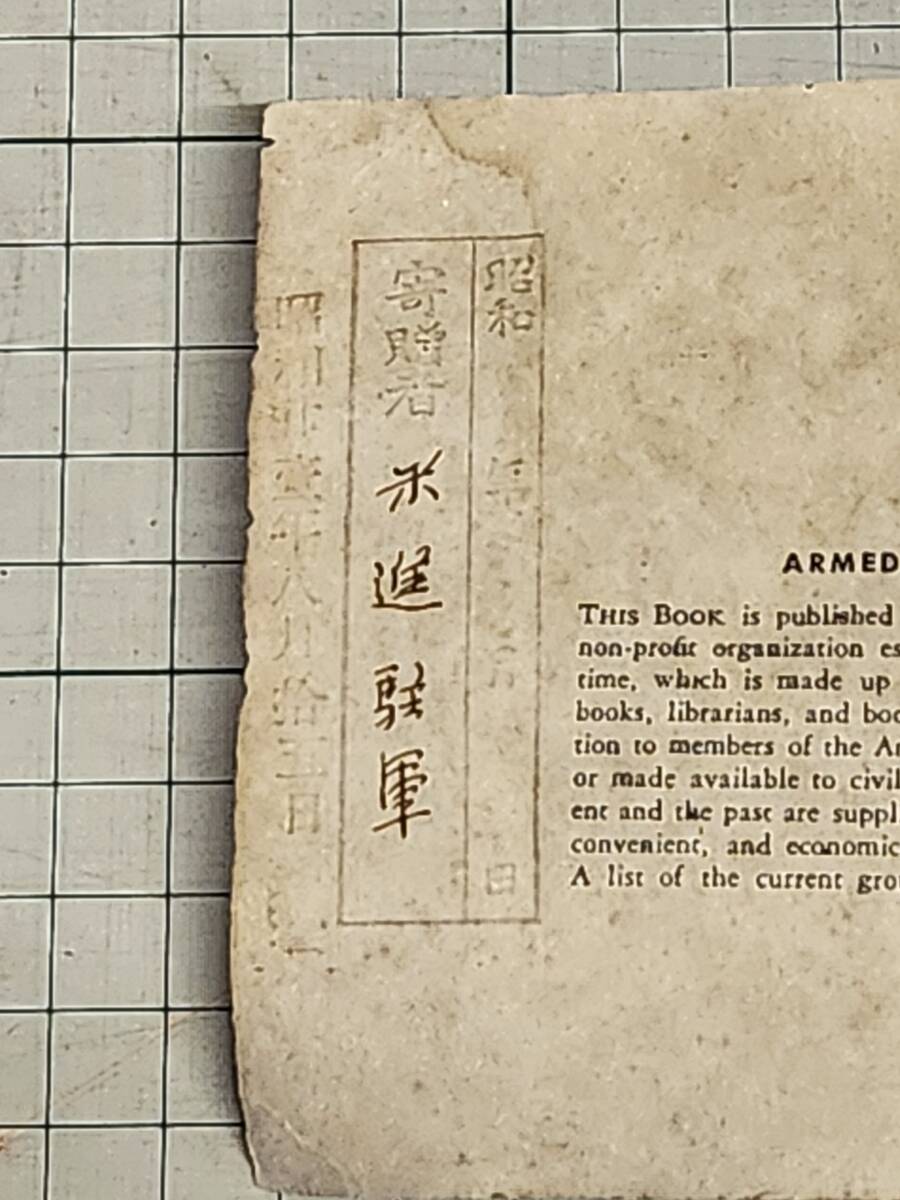 昭和 年 月 日
寄贈者 米進駐軍
昭和廿壹年八月拾五日
ARMED
THIS BOOK is published
non-profit organization es
time, which is made up
books, librarians, and boo
tion to members of the Ar
or made available to civil
ent and the past are suppl
convenient, and economic
A list of the current grou